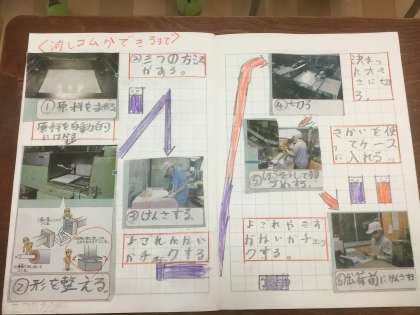 〈消しゴムができるまで〉
①原料をまぜる
原料を自動的
にはかる
②形を整える
②三つの方法
がある。
③けんさする。
よごれたない
かチェックする
④切る
決まっ
た大き
さに切
る。
きかいを使っ
てケース
に入れる。
よごれやきず
がないかチェッ
クする。
⑥出荷前にけんさする